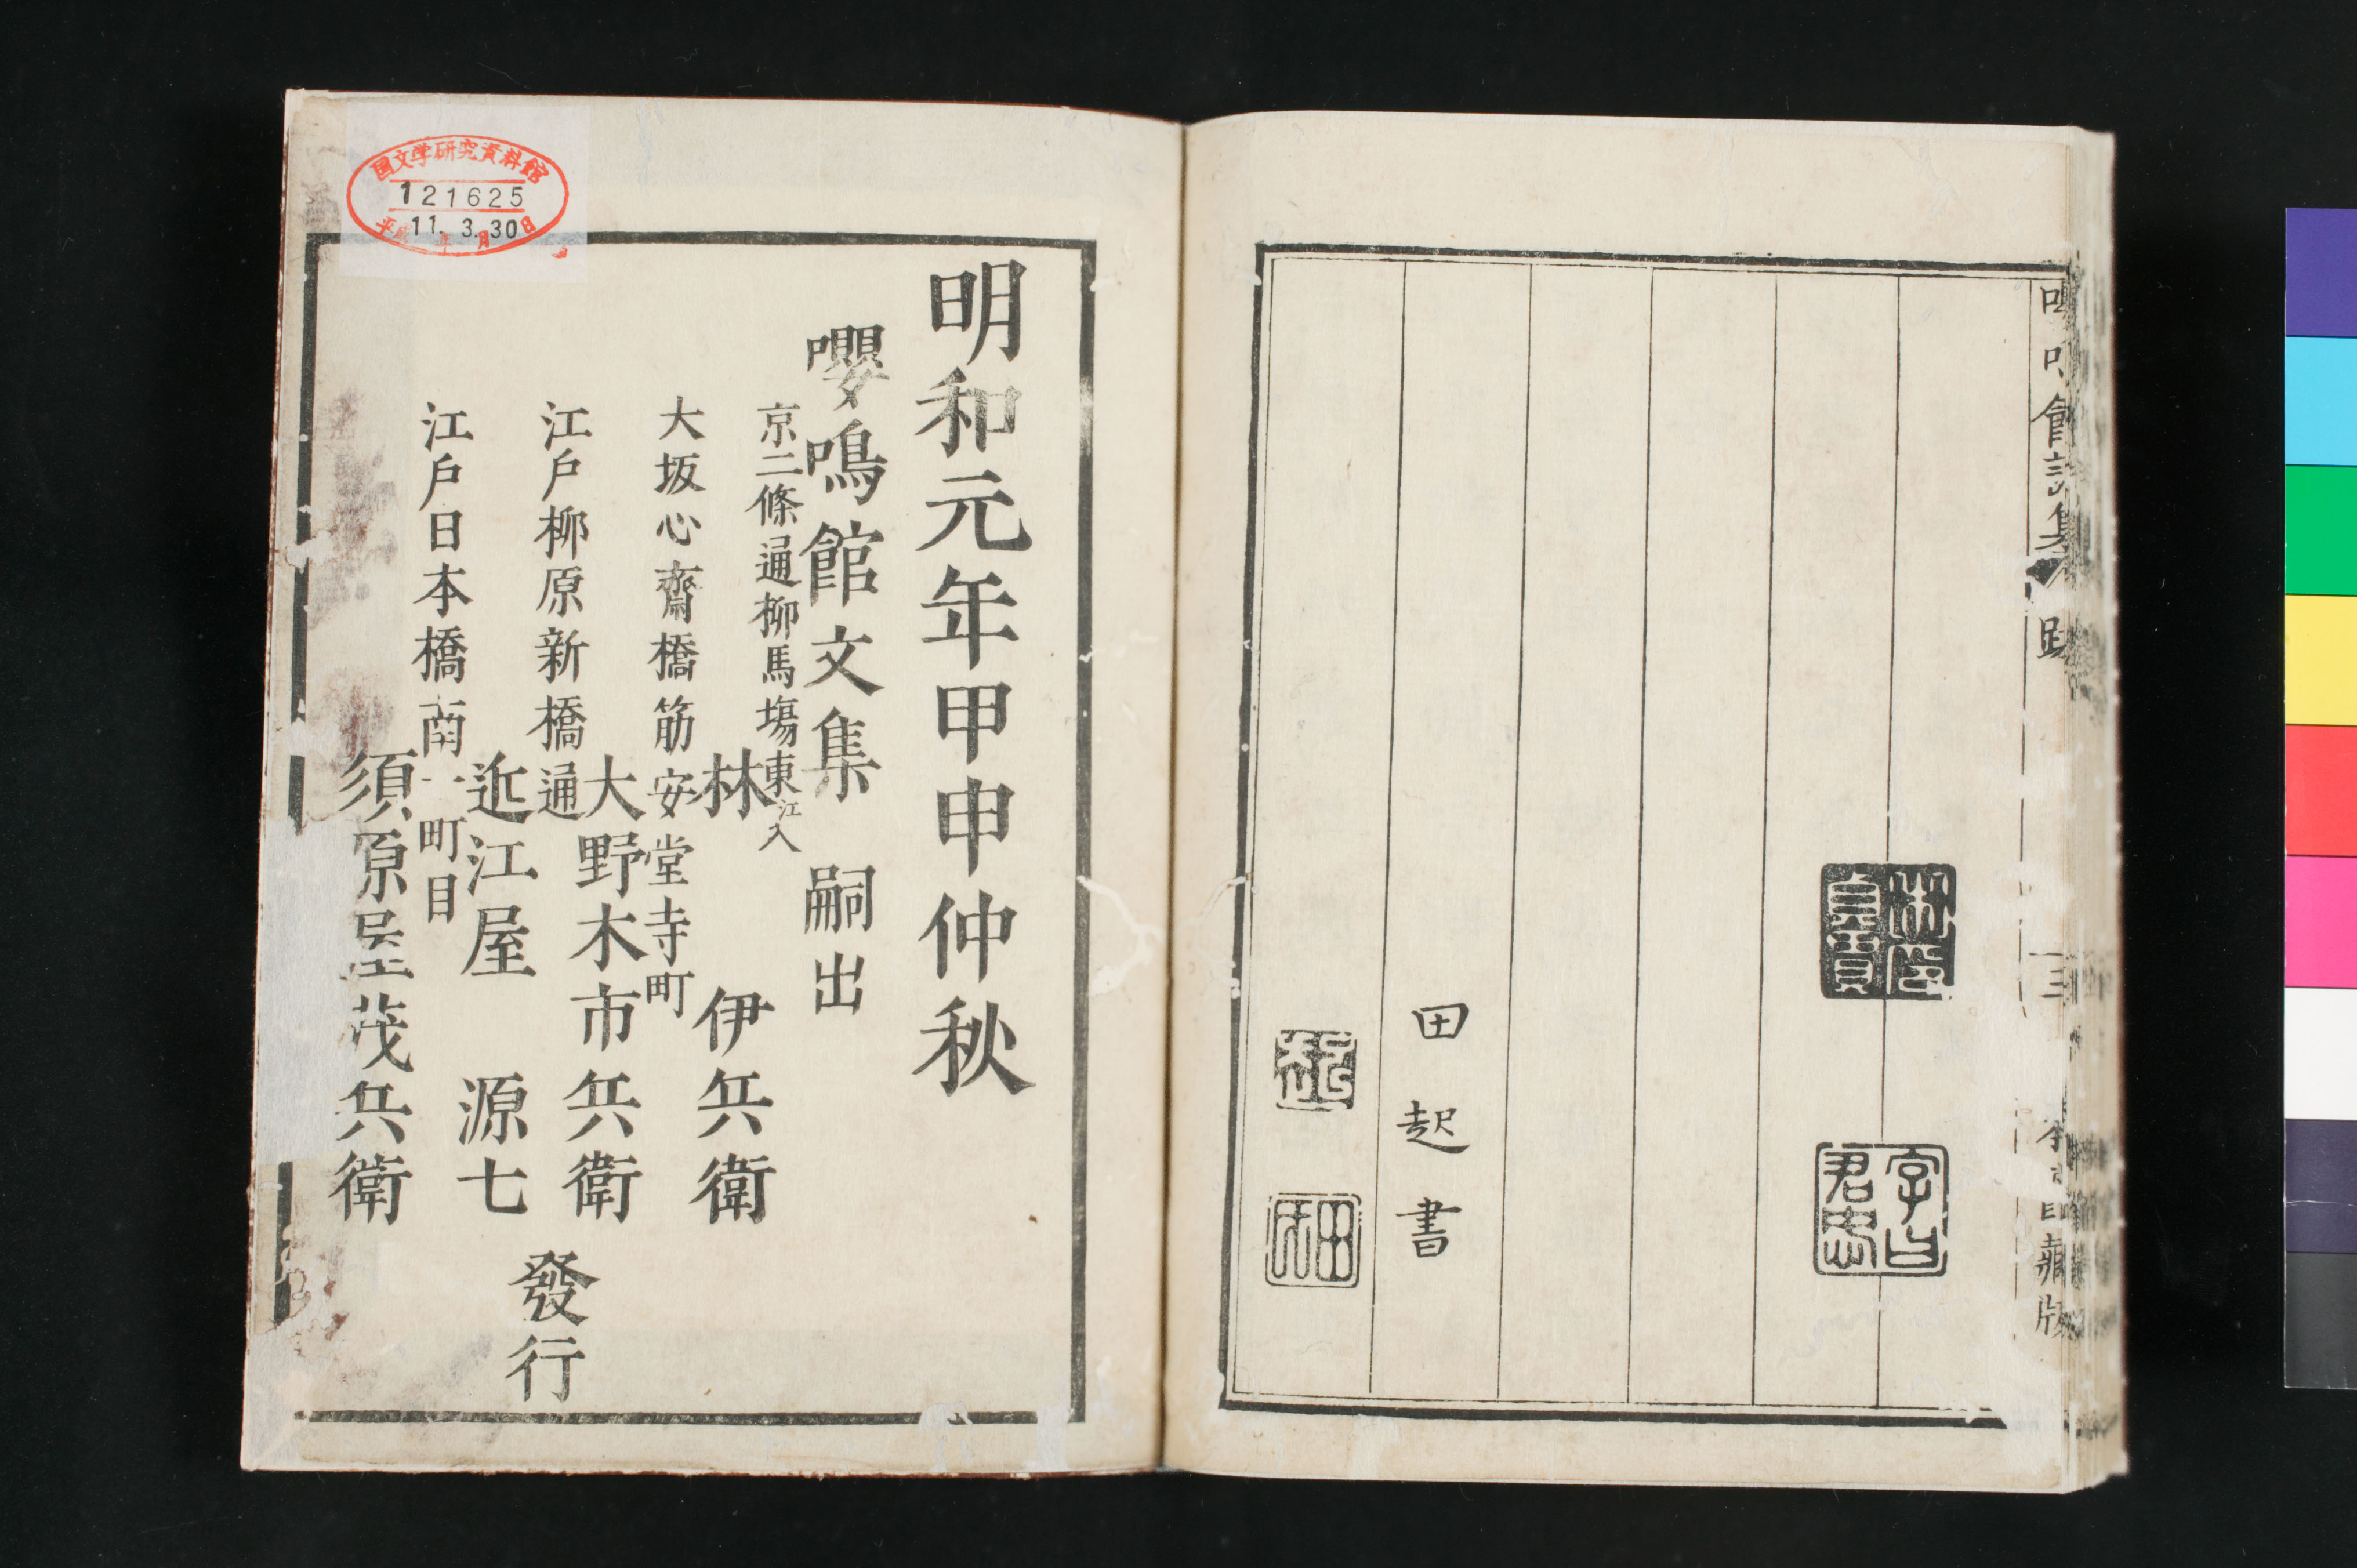 田起書
字曰
君忠
明和元年甲申仲秋
嚶鳴館文集 嗣出
京二條通柳馬塲東江入
林 伊兵衛
大坂心齋橋筋安堂寺町
大野木市兵衛
江戸柳原新橋通
近江屋 源七
江戸日本橋南一町目
須原屋茂兵衛
發行
国文学研究資料館
121625
平成11年3月30日